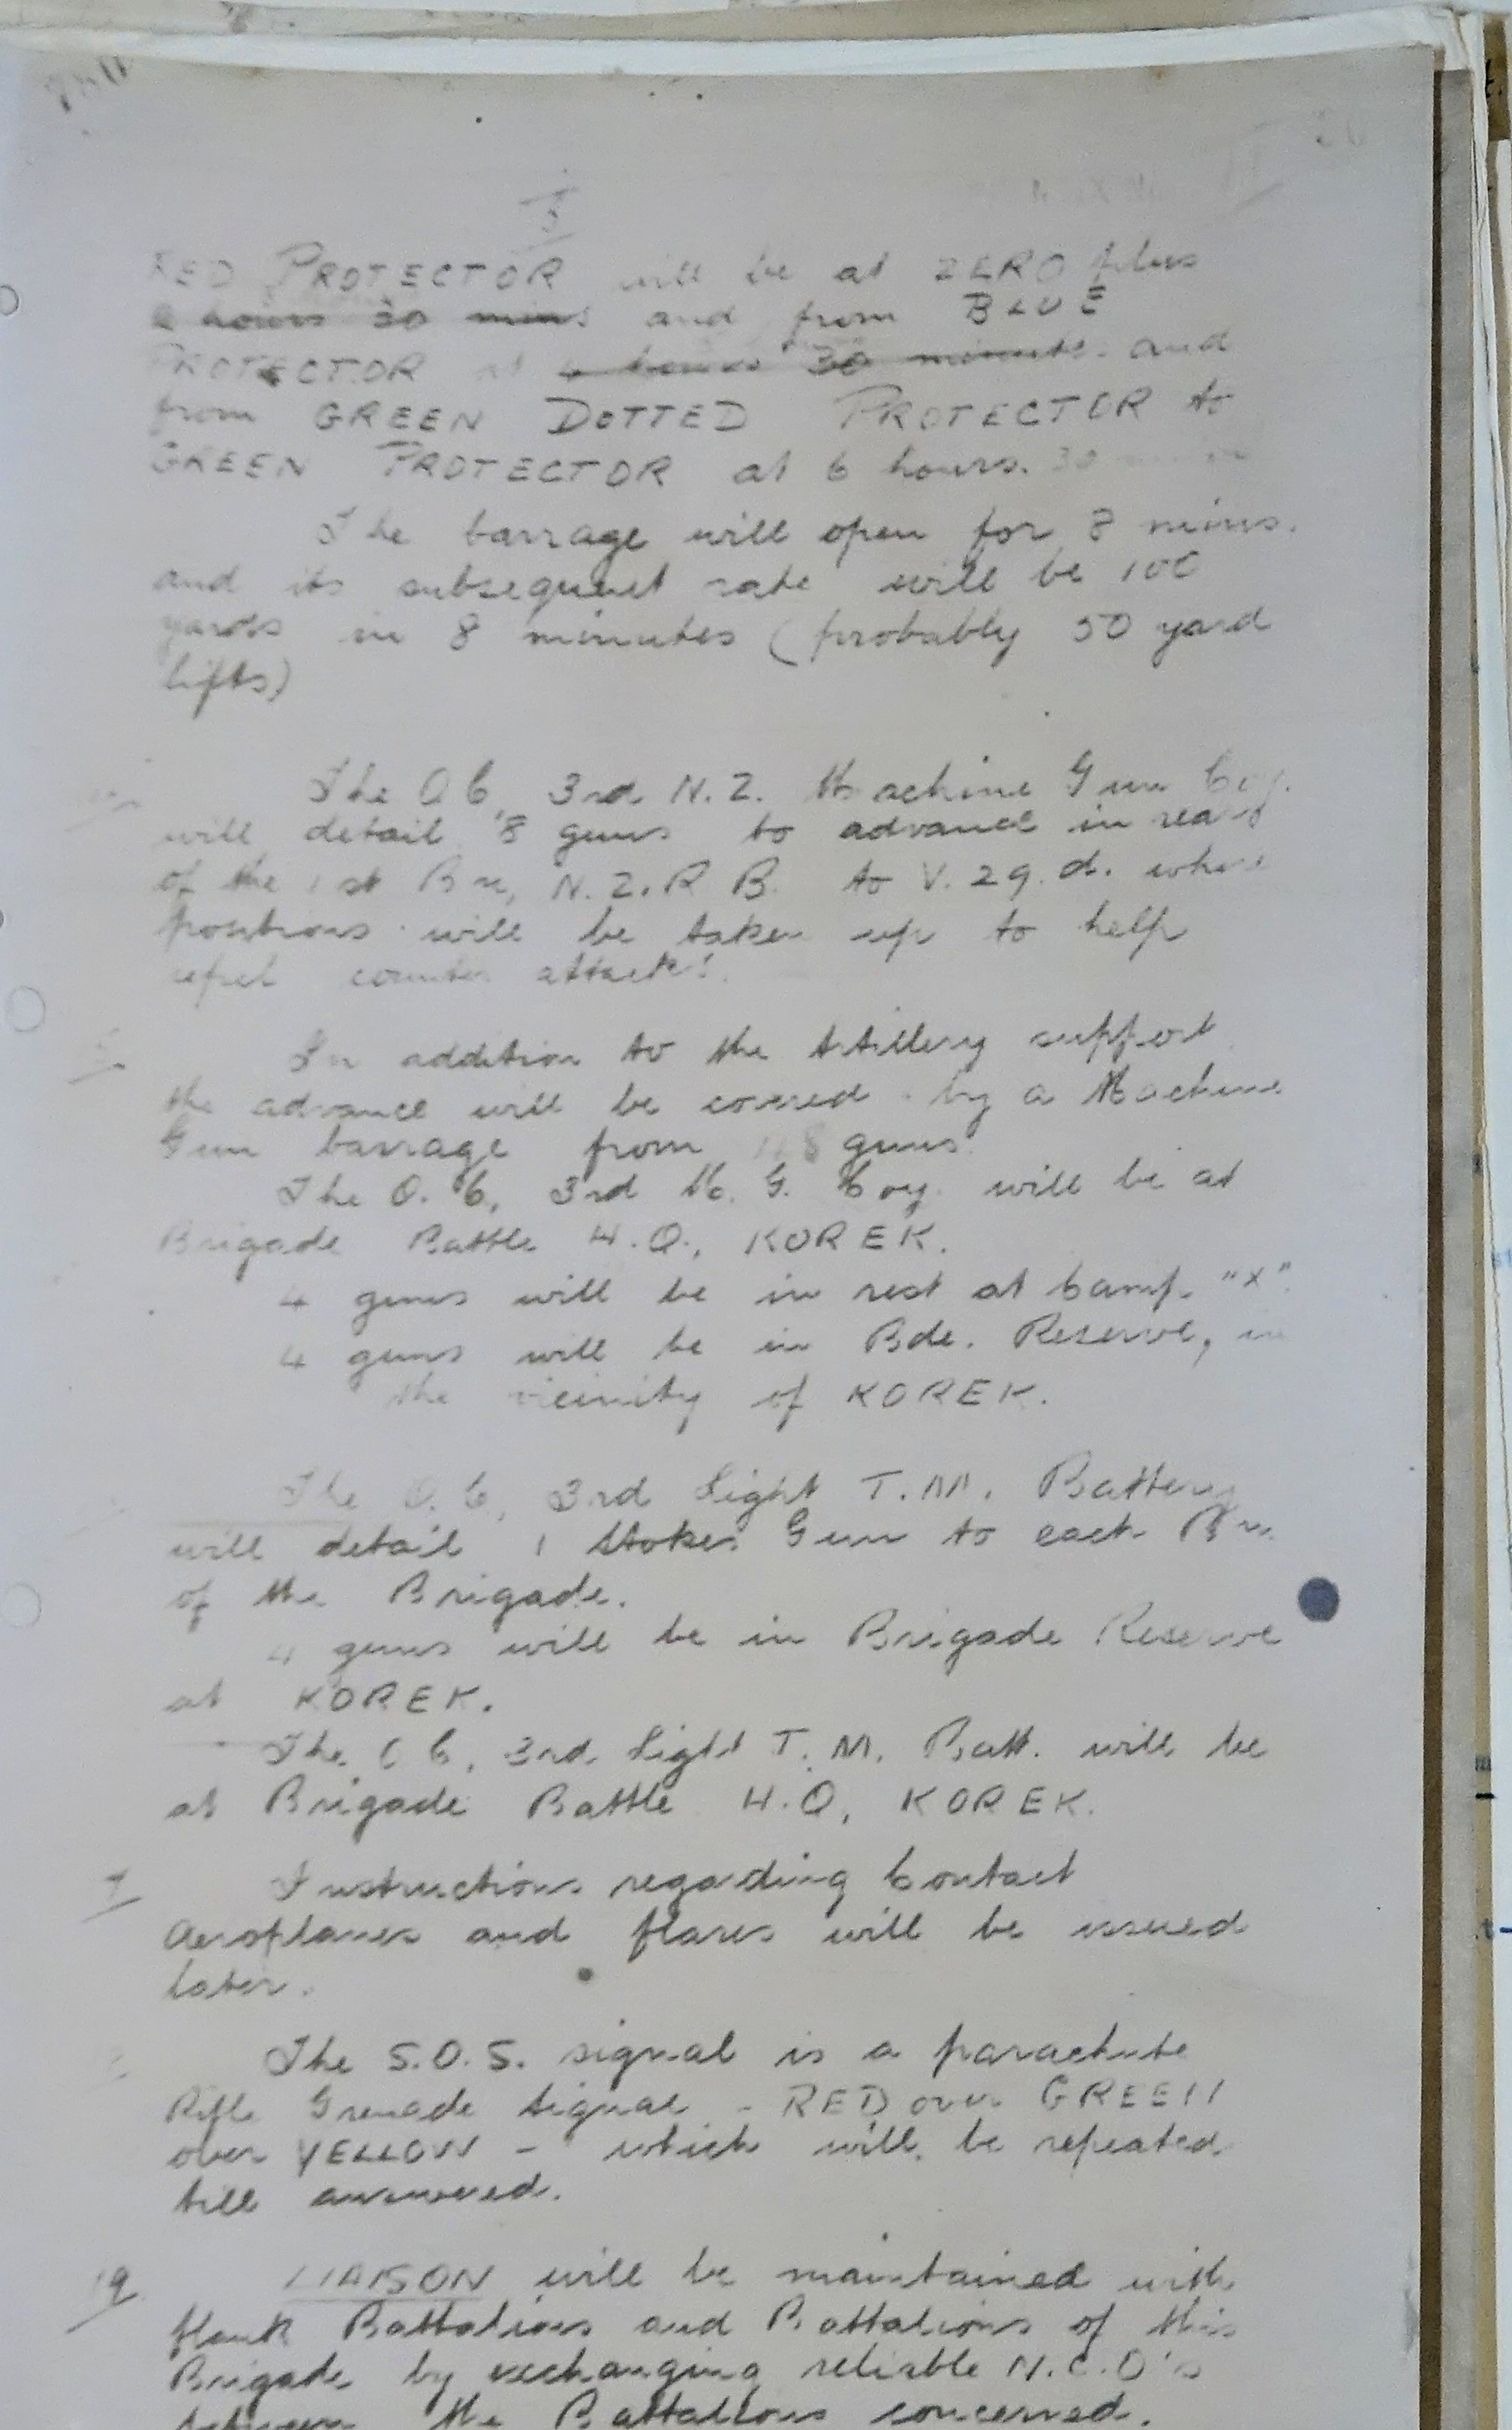 3
RED PROTECTOR will be at ZERO plus
2 hours 30 mins and from BLUE
PROTECTOR at 4 hours 30 minutes. and
from GREEN DOTTED PROTECTOR to
GREEN PROTECTOR at 6 hours. 30
The barrage will open for 8 mins.
and its subsequent rate will be 100
yards in 8 minutes (probably 50 yard
lifts)
The O C, 3rd N.Z. Machine Gun Coy.
will detail 8 guns to advance in rear
of the 1st Bn, N.Z.R B. to V.29.d. where
positions will be taken up to help
repel counter attacks.
In addition to the Artillery support
the advance will be covered by a Machine
Gun barrage from guns.
The O.C, 3rd M.G. Coy. will be at
Brigade Battle H.Q., KOREK.
4 guns will be in rest at Camp "X".
4 guns will be in Bde. Reserve, in
the vicinity of KOREK.
The O.C, 3rd Light T.M. Battery
will detail 1 Stokes Gun to each Bn.
of the Brigade.
4 guns will be in Brigade Reserve
at KOREK.
The O C, 3rd Light T.M. Batt. will be
at Brigade Battle H.Q, KOREK.
7 Instructions regarding Contact
Aeroplanes and flares will be issued
later.
The S.O.S. signal is a parachute
Rifle Grenade Signal - RED over GREEN
over YELLOW - which will be repeated
till answered.
LIAISON will be maintained with
flank Battalions and Battalions of this
Brigade by exchanging reliable N.C.O's
between the Battalions concerned.